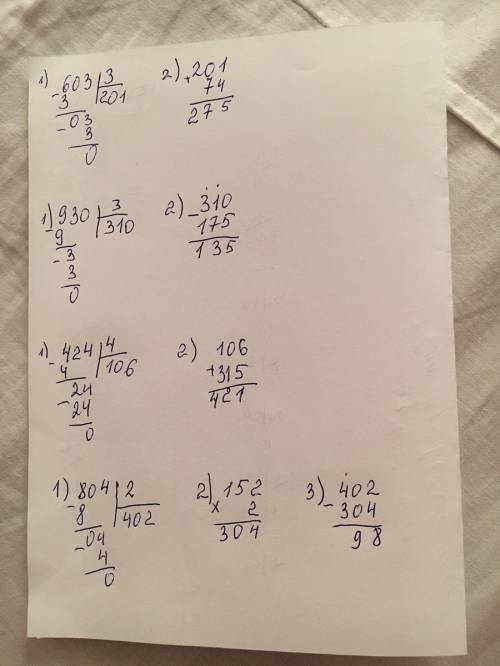 1) -603 | 3   2) +201
3 | 201   74
-03   275
3
0
1) -930 | 3   2) -310
9 | 310   175
-3   135
3
0
1) -424 | 4   2) 106
4 | 106   +315
-24   421
24
0
1) -804 | 2   2) ×152   3) -402
8 | 402   2   304
-04   304   98
4
0